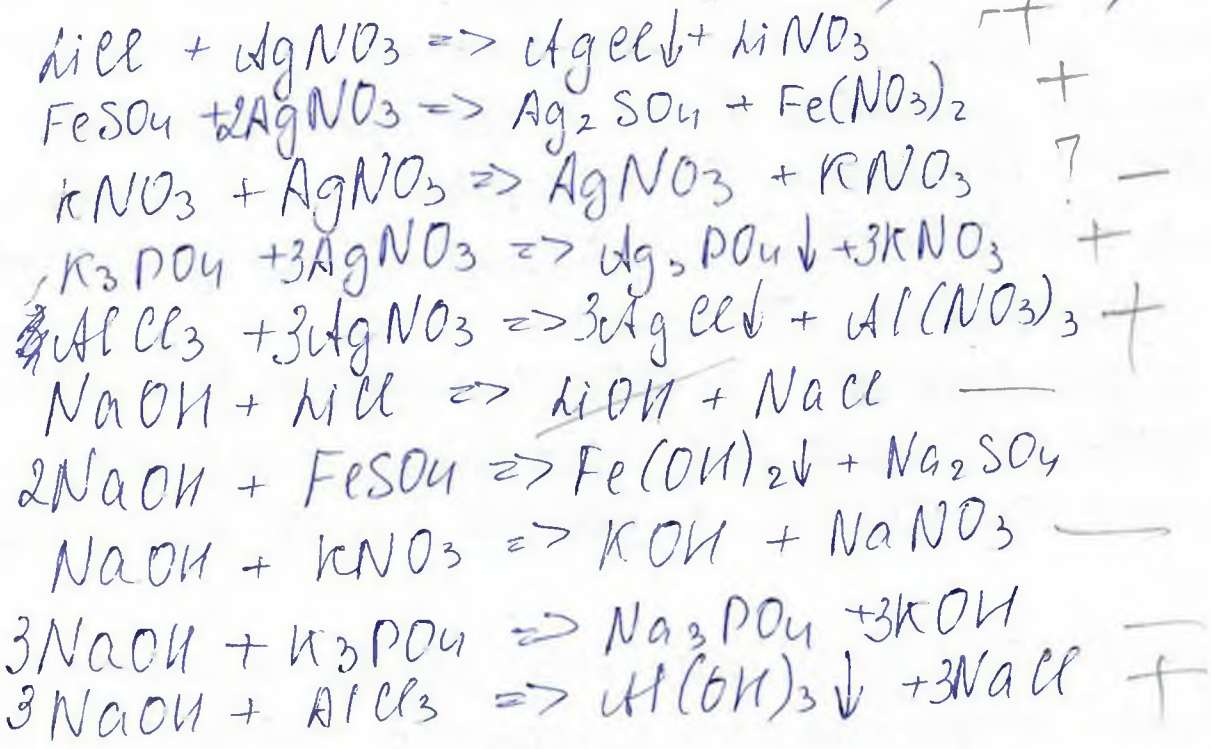 LiCl + AgNO3 => AgCl↓ + LiNO3 +
FeSO4 + 2AgNO3 => Ag2SO4 + Fe(NO3)2 +
KNO3 + AgNO3 => AgNO3 + KNO3 ? —
K3PO4 + 3AgNO3 => Ag3PO4↓ + 3KNO3 +
AlCl3 + 3AgNO3 => 3AgCl↓ + Al(NO3)3 +
NaOH + LiCl => LiOH + NaCl —
2NaOH + FeSO4 => Fe(OH)2↓ + Na2SO4
NaOH + KNO3 => KOH + NaNO3 —
3NaOH + K3PO4 => Na3PO4 + 3KOH —
3NaOH + AlCl3 => Al(OH)3↓ + 3NaCl +